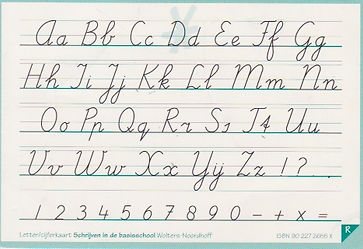 Aa Bb Cc Dd Ee Ff Gg
Hh Ii Jj Kk Ll Mm Nn
Oo Pp Qq Rr Ss Tt Uu
Vv Ww Xx Yy Zz ! ?
1 2 3 4 5 6 7 8 9 0 - + x =
Letter/cijferkaart Schrijven in de basisschool Wolters-Noordhoff ISBN R